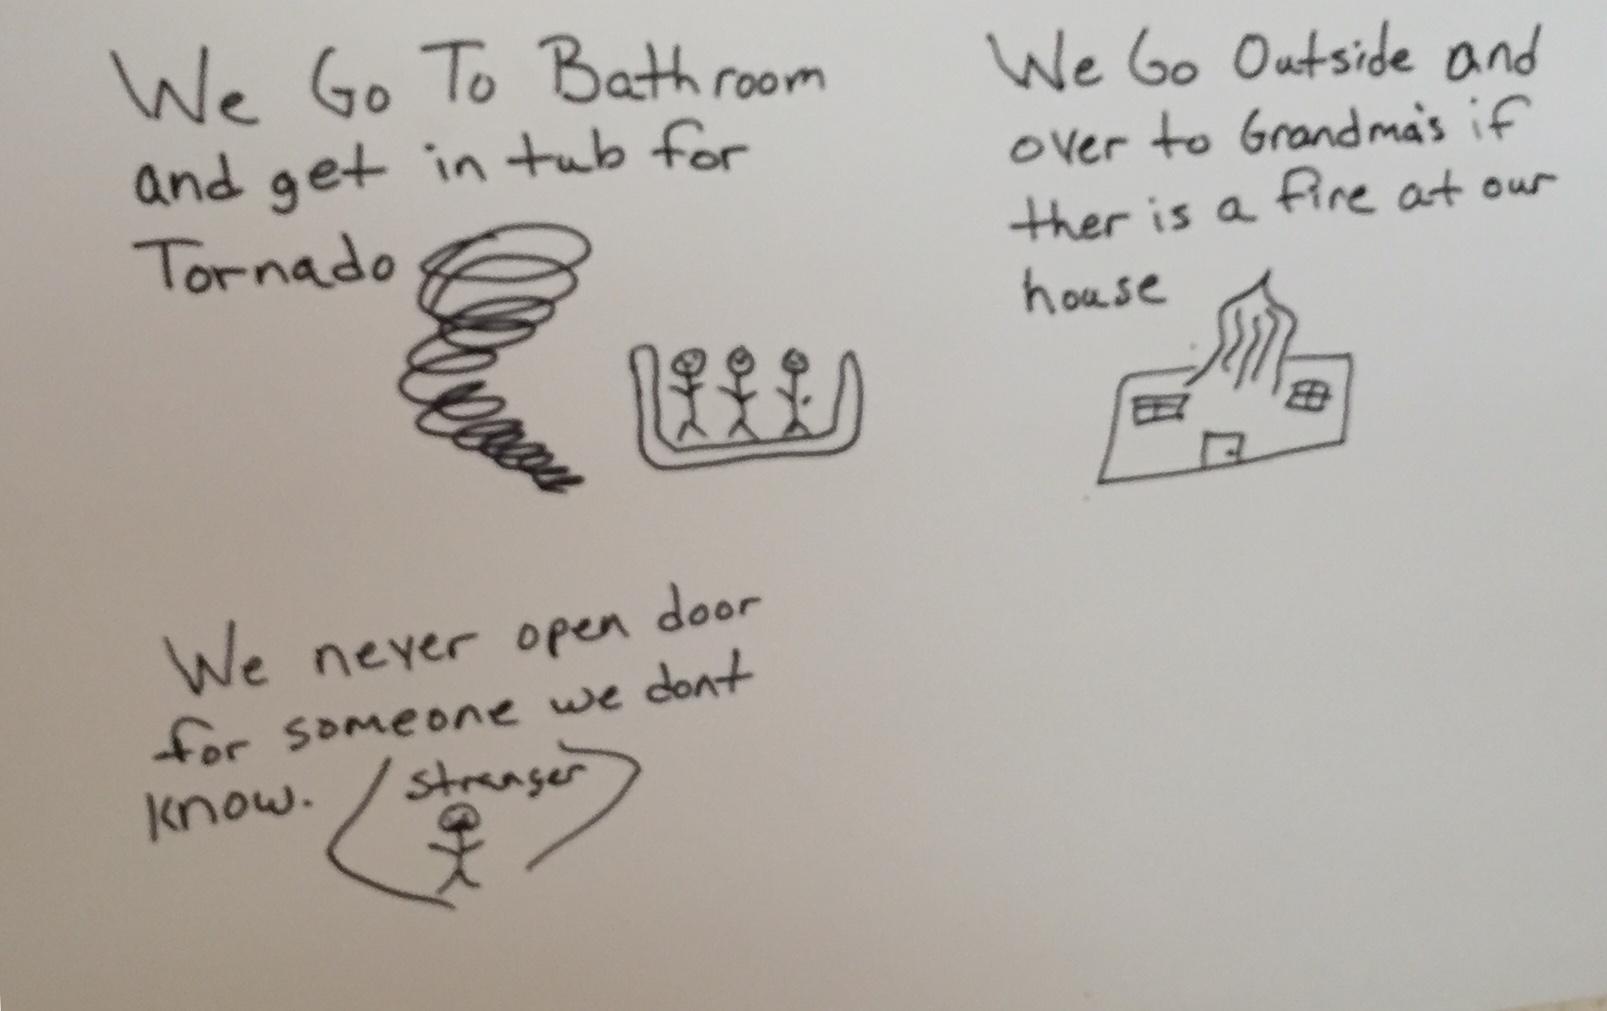 We Go To Bathroom
and get in tub for
Tornado
We Go Outside and
over to Grandma's if
ther is a fire at our
house
We never open door
for someone we dont
know.
Stranger